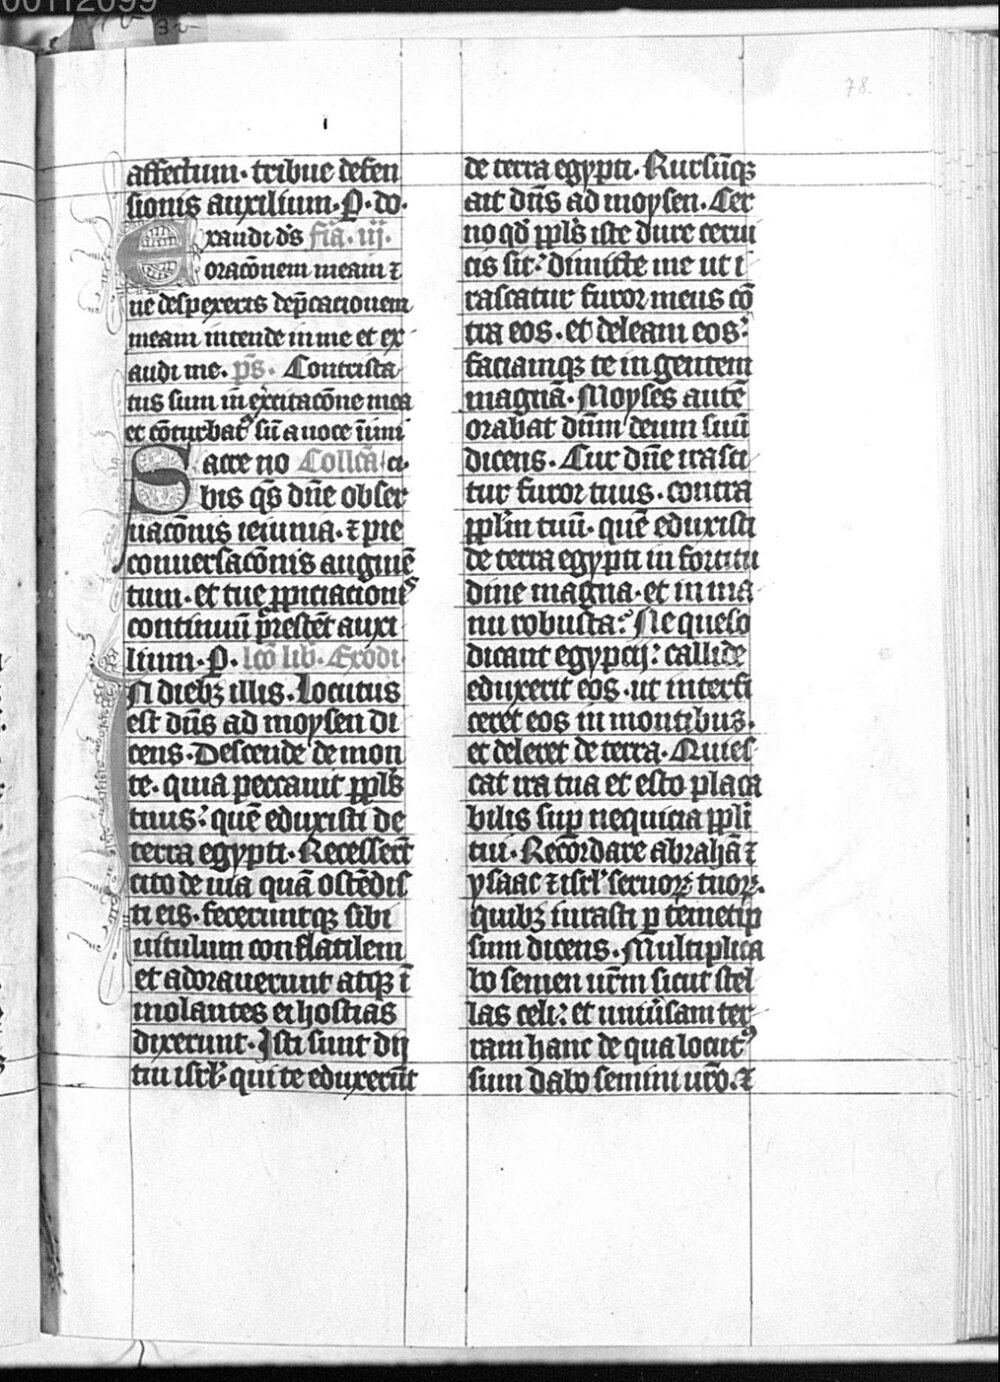 00112099
78.
affectum. tribue defen
sionis auxilium. P. do.
Exaudi d̄s fīa. iij.
orac̄onem meam ⁊
ne despexeris dep̄cationem
meam intende in me et ex
audi me. p̄s. Contrista
tus sum in ex̄citac̄one mea
et cōturbatꝰ sū a voce īimi
Sacre no Coll̄ca ci
bis q̄s dn̄e obser
uac̄onis ieiunia. ⁊ pie
conuersac̄onis augmē
tum. et tue ꝓpiciationꝭ
continuū p̄restēt auxi
lium. P. lc̄o lib. Exodi.
In diebꝫ illis. Locutus
est dn̄s ad moysen di
cens. Descende de mon
te. quia peccauit ppl̄s
tuus: quē eduxisti de
terra egypti. Recesser̄t
cito de uia quā ostēdis
ti eis. feceruntqꝫ sibi
uitulum conflatilem
et adorauerunt atqꝫ ī
molantes ei hostias
dixerunt. Isti sunt dij
tui isrl̄. qui te eduxerūt
de terra egypti. Rursūqꝫ
ait dn̄s ad moysen. Cer
no qd̄ ppl̄s iste dure cerui
cis sit: dimitte me ut i
rascatur furor meus cō
tra eos. et deleam eos:
faciamqꝫ te in gentem
magnā. Moyses autē
orabat dn̄m deum suū
dicens. Cur dn̄e irasci
tur furor tuus. contra
ppl̄m tuū. quē eduxisti
de terra egypti in fortitu
dine magna. et in ma
nu robusta: Ne queso
dicant egyptij: callide
eduxerit eos. ut interfi
ceret eos in montibus.
et deleret de terra. Quies
cat ira tua et esto placa
bilis sup nequicia ppl̄i
tui. Recordare abrahā ⁊
ysaac ⁊ isrl̄ seruoꝝ tuoꝝ.
quibꝫ iurasti p temetip
sum dicens. Multiplica
bo semen ur̄m sicut stel
las celi: et uniūsam ter
ram hanc de qua locutꝰ
sum dabo semini ur̄o. ⁊